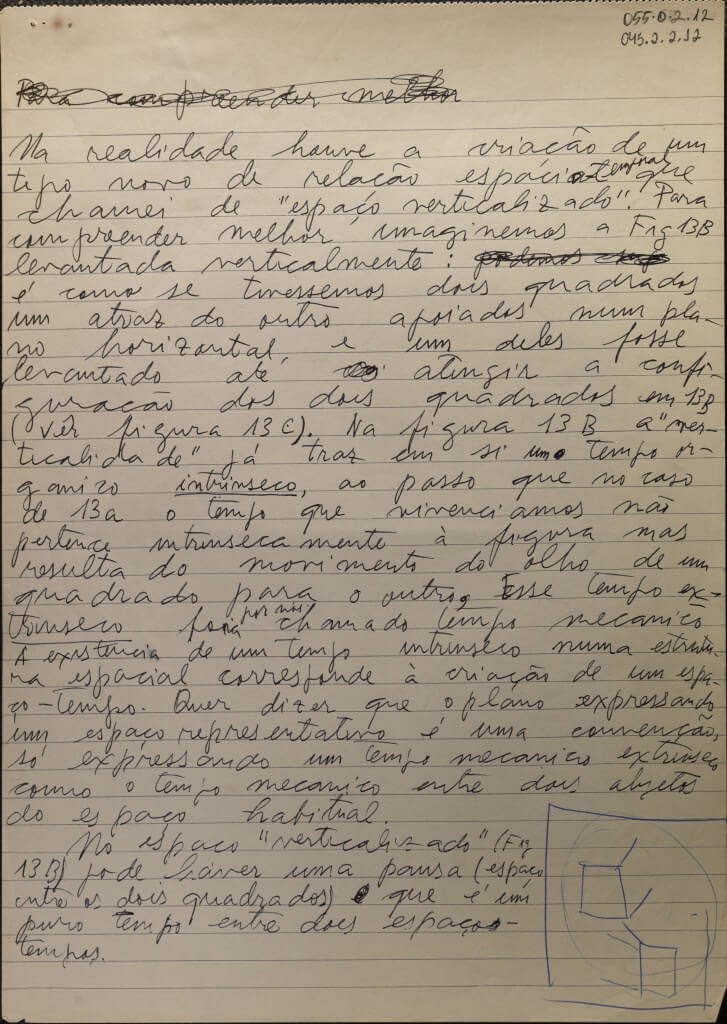 055.0.2.12
045.2.2.12
Para compreender melhor
Na realidade houve a criação de um
tipo novo de relação espácio-temporal que
chamei de "espaço verticalizado". Para
compreender melhor, imaginemos a Fig 13B
levantada verticalmente: podemos
é como se tivessemos dois quadrados
um atraz do outro apoiados num pla-
no horizontal, e um deles fosse
levantado até atingir a confi-
guração dos dois quadrados em 13B
(Vêr figura 13C). Na figura 13B a "ver-
ticalidade" já traz em si um tempo or-
ganico intrínseco, ao passo que no caso
de 13a o tempo que vivenciamos não
pertence intrinsecamente à figura mas
resulta do movimento do olho de um
quadrado para o outro. Esse tempo ex-
trinseco foi por nós chamado tempo mecanico
A existência de um tempo intrinseco numa estrutu-
ra espacial corresponde à criação de um espa-
ço-tempo. Quer dizer que o plano expressando
um espaço representativo é uma convenção,
só expressando um tempo mecanico extrinseco
como o tempo mecanico entre dois objetos
do espaço habitual.
No espaço "verticalizado" (Fig
13B) pode haver uma pausa (espaço
entre os dois quadrados) que é um
puro tempo entre dois espaços-
tempos.